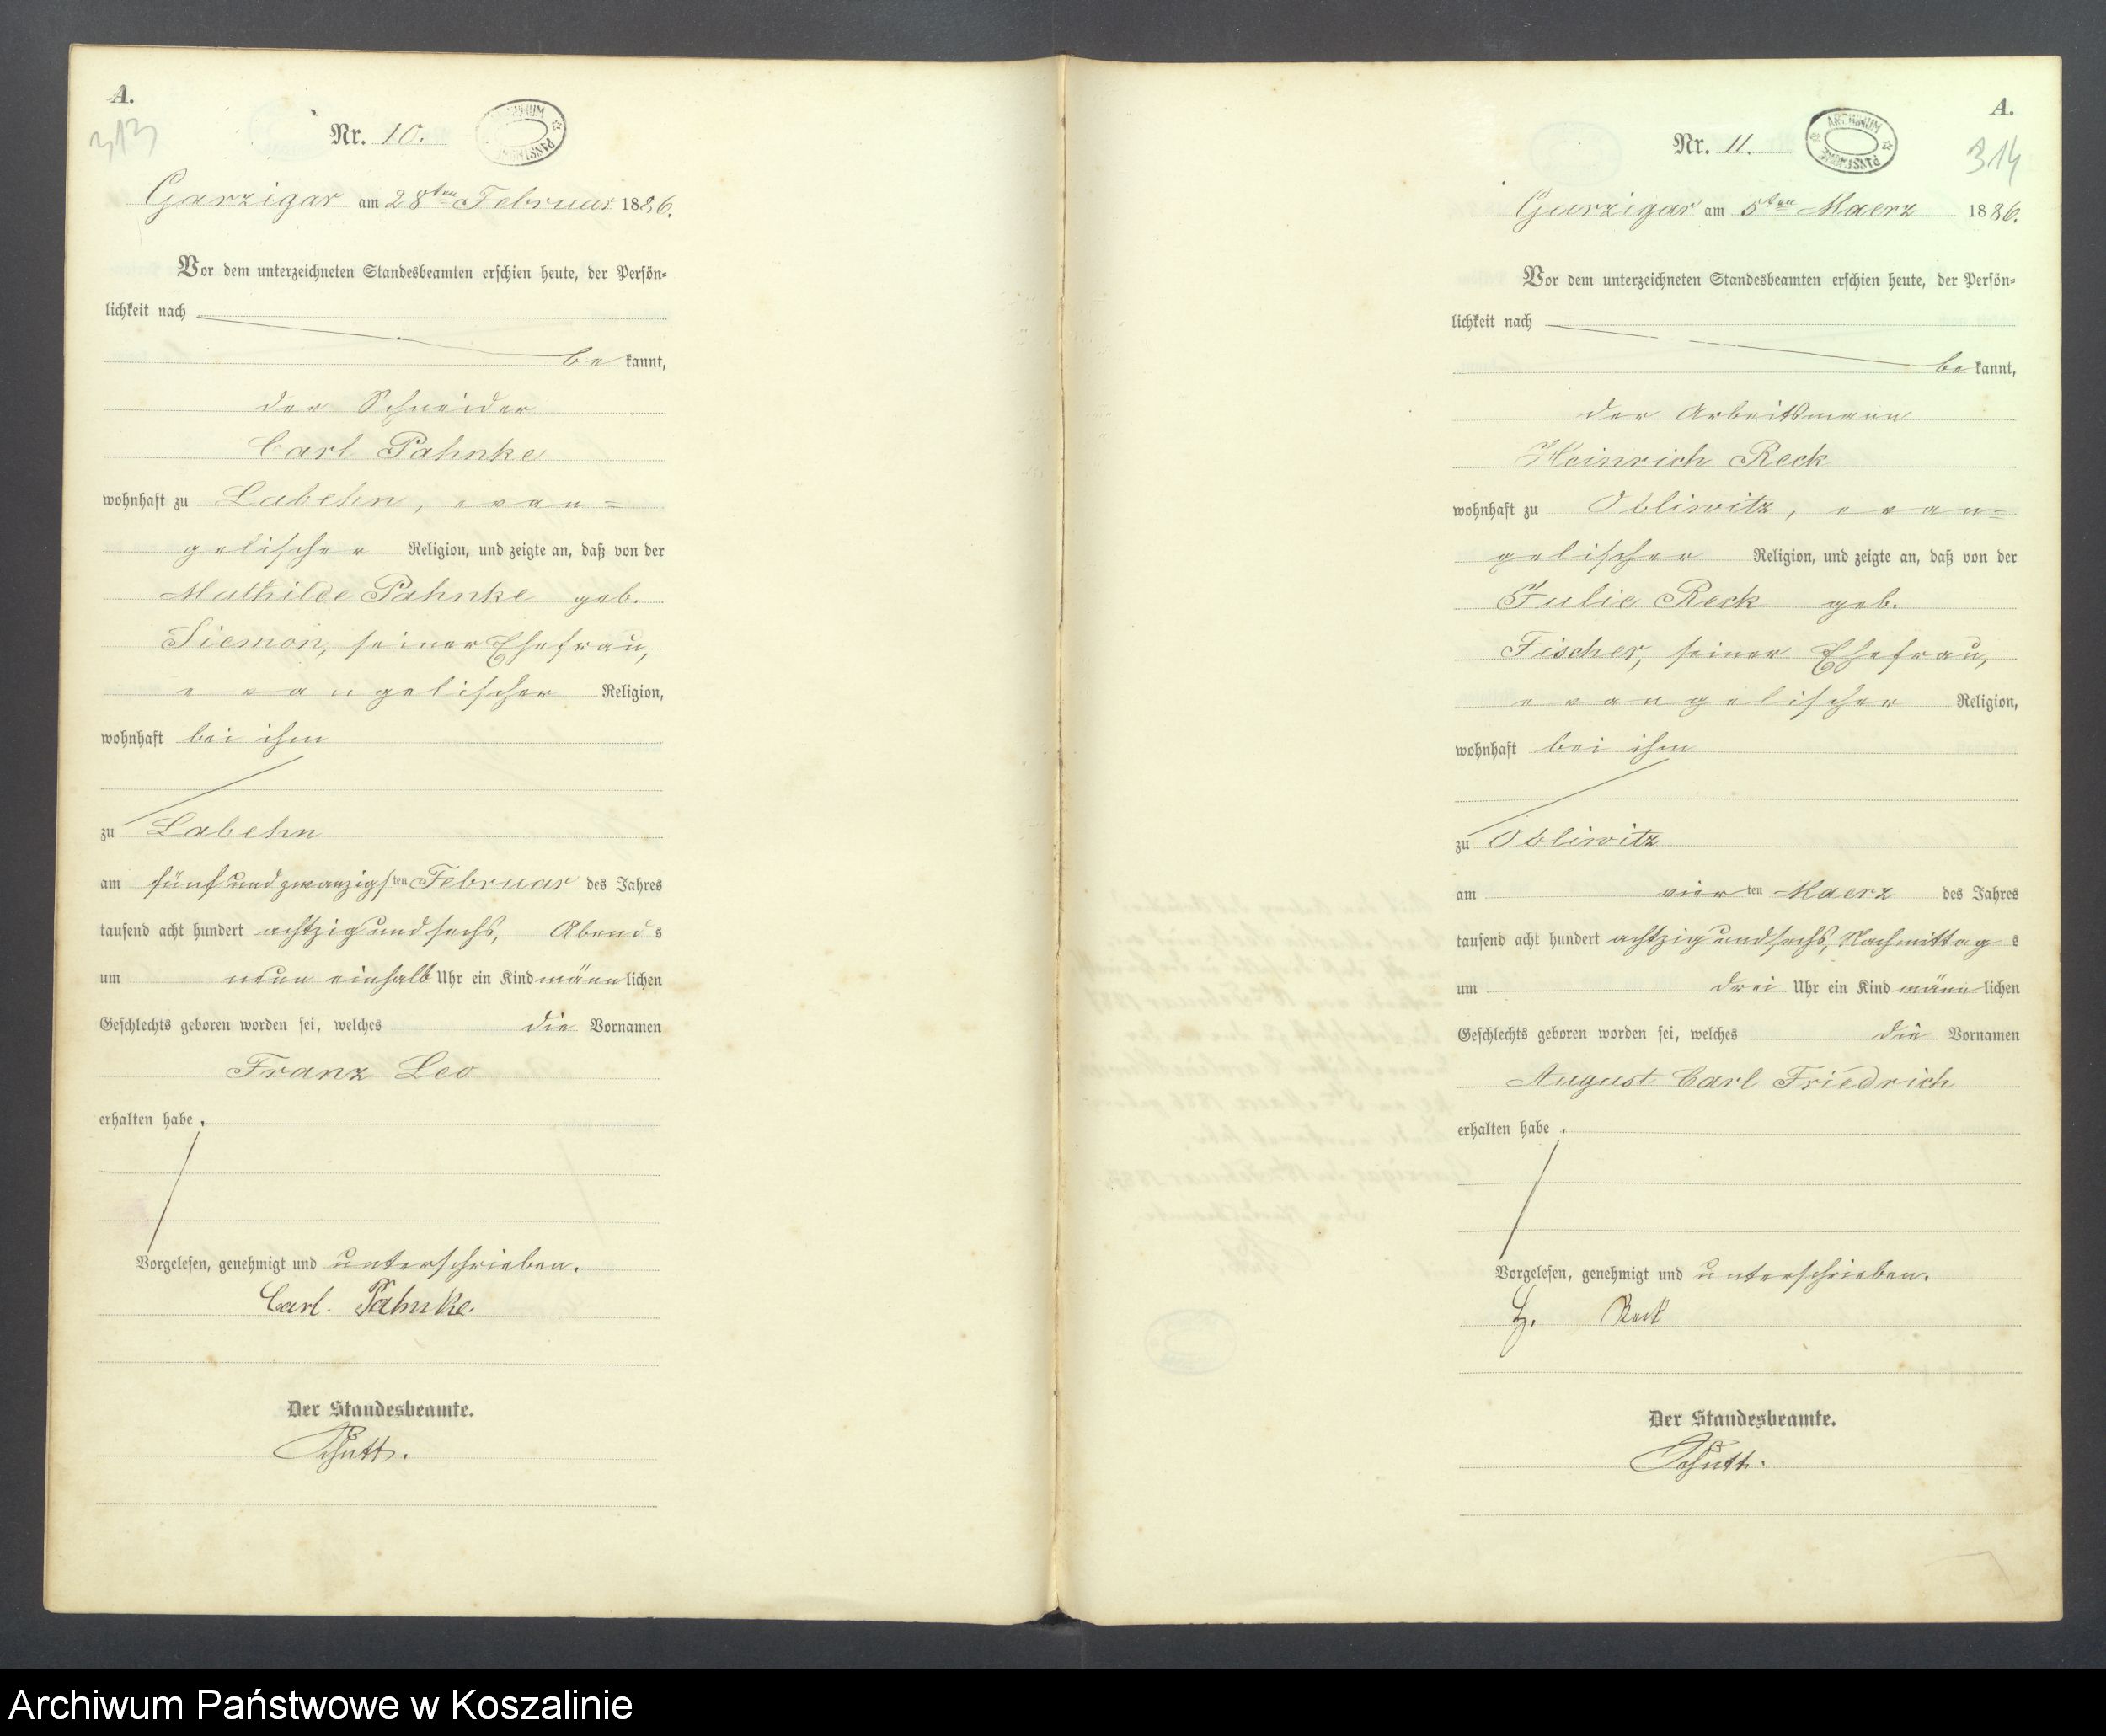 A.
313
Nr. 10.
Garzigar am 28ten Februar 1886.
Vor dem unterzeichneten Standesbeamten erschien heute, der Persön-
lichkeit nach
be kannt,
der Schneider
Carl Pahnke
wohnhaft zu Labehn, evan=
gelischer Religion, und zeigte an, daß von der
Mathilde Pahnke geb.
Siemon, seiner Ehefrau,
evangelischer Religion,
wohnhaft bei ihm
zu Labehn
am fünfundzwanzigsten Februar des Jahres
tausend acht hundert achtzig und sechs, Abends
um neun einhalb Uhr ein Kind männlichen
Geschlechts geboren worden sei, welches die Vornamen
Franz Leo
erhalten habe.
Vorgelesen, genehmigt und unterschrieben.
Carl Pahnke.
Der Standesbeamte.
A.
314
Nr. 11.
ARCHIWUM PAŃSTWOWE
Garzigar am 5ten Maerz 1886.
Vor dem unterzeichneten Standesbeamten erschien heute, der Persön-
lichkeit nach
be kannt,
der Arbeitsmann
Heinrich Reck
wohnhaft zu Obliwitz, evan=
gelischer Religion, und zeigte an, daß von der
Julie Reck geb.
Fischer, seiner Ehefrau,
evangelischer Religion,
wohnhaft bei ihm
zu Obliwitz
am vierten Maerz des Jahres
tausend acht hundert achtzig und sechs, Nachmittags
um drei Uhr ein Kind männlichen
Geschlechts geboren worden sei, welches die Vornamen
August Carl Friedrich
erhalten habe.
Vorgelesen, genehmigt und unterschrieben.
H. Reck
Der Standesbeamte.
Archiwum Państwowe w Koszalinie